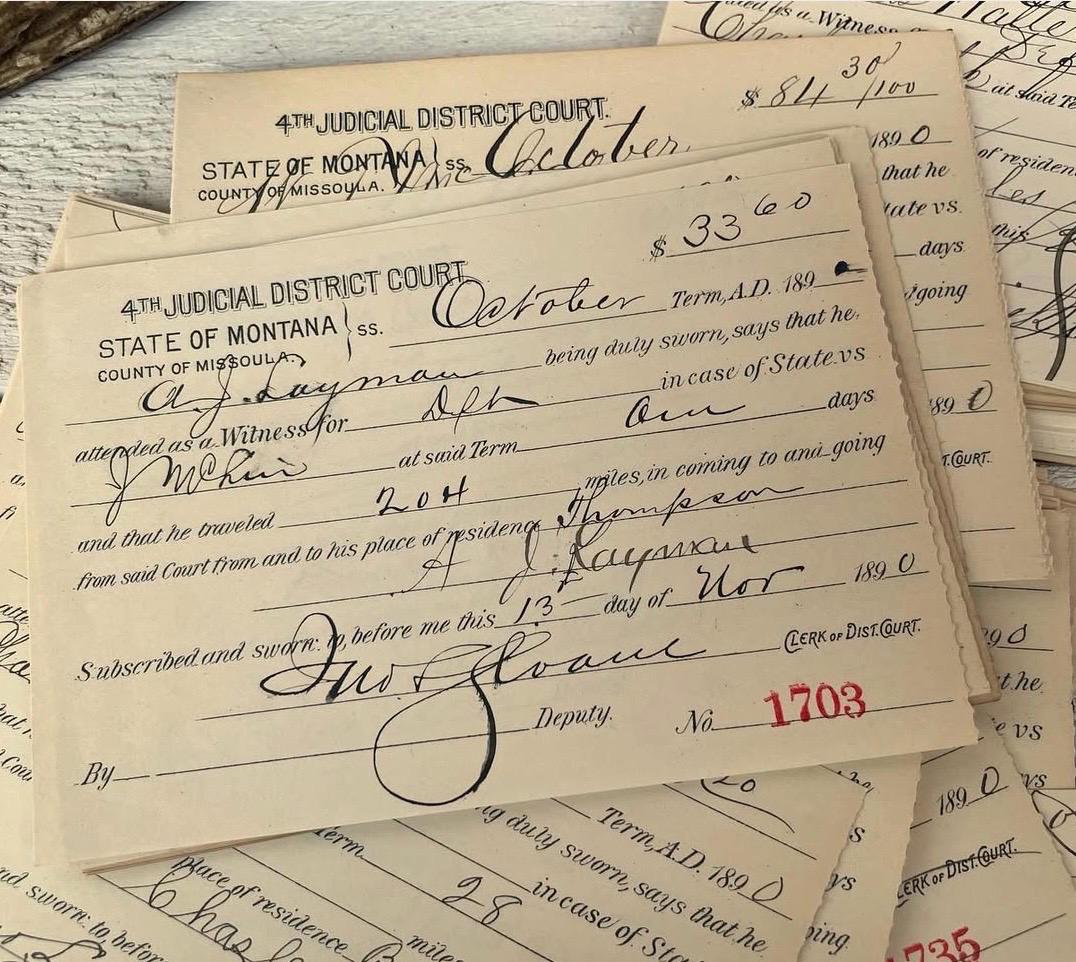 ated as a Witness
4TH JUDICIAL DISTRICT COURT.
$ 84 30/100
STATE OF MONTANA } SS. October
COUNTY OF MISSOULA.
1890
that he
tate vs.
days
going
890
T. COURT.
at said Te
of residen
this
4TH JUDICIAL DISTRICT COURT
$ 33 60
STATE OF MONTANA } SS. October Term, A.D. 189
COUNTY OF MISSOULA.
A. J. Layman being duly sworn, says that he
attended as a Witness for Dft in case of State vs
J at said Term One days
and that he traveled 204 miles, in coming to and going
from said Court from and to his place of residence Thompson
A J. Layman
Subscribed and sworn to, before me this 13 day of Nov 1890
Jno Sloane CLERK OF DIST. COURT.
By Deputy. No. 1703
90
t he
e vs
ys
1890
CLERK OF DIST. COURT.
1735
Term, A.D. 1890
ng duly sworn, says that he
in case of Sta
Term 28
place of residence miles
Chas
nd sworn to, befor
ys
oing